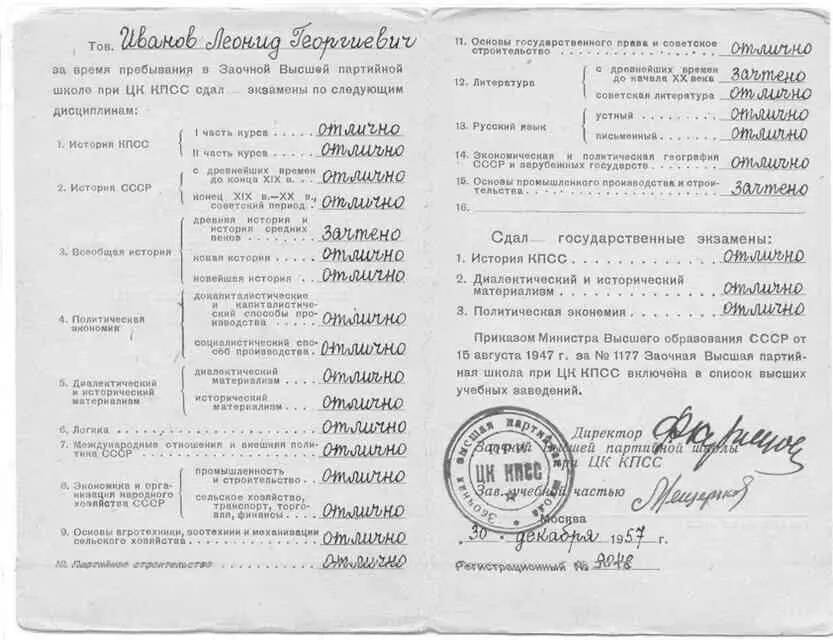 Тов. Иванов Леонид Георгиевич
за время пребывания в Заочной Высшей партийной
школе при ЦК КПСС сдал экзамены по следующим
дисциплинам:
1. История КПСС
I часть курса . . . . . отлично
II часть курса . . . . отлично
2. История СССР
с древнейших времен
до конца XIX в. . . . отлично
конец XIX в.—XX в.,
советский период . . отлично
3. Всеобщая история
древняя история и
история средних
веков . . . . . . . . зачтено
новая история . . . . отлично
новейшая история . . отлично
4. Политическая
экономия
докапиталистические
и капиталистиче-
ский способы про-
изводства . . . . . отлично
социалистический спо-
соб производства . . отлично
5. Диалектический
и исторический
материализм
диалектический
материализм . . . . отлично
исторический
материализм . . . . отлично
6. Логика . . . . . . . . . . . . отлично
7. Международные отношения и внешняя поли-
тика СССР . . . . . . . . . . . отлично
8. Экономика и орга-
низация народного
хозяйства СССР
промышленность
и строительство . . отлично
сельское хозяйство,
транспорт, торгов-
ля, финансы . . . . отлично
9. Основы агротехники, зоотехнии и механизации
сельского хозяйства . . . . . . . отлично
10. Партийное строительство . . . отлично
11. Основы государственного права и советское
строительство . . . . . . . . . отлично
12. Литература
с древнейших времен
до начала XX века . зачтено
советская литература . отлично
13. Русский язык
устный . . . . . . . отлично
письменный . . . . . отлично
14. Экономическая и политическая география
СССР и зарубежных государств . . . отлично
15. Основы промышленного производства и строи-
тельства . . . . . . . . . . . зачтено
16.
Сдал государственные экзамены:
1. История КПСС . . . . . . . отлично
2. Диалектический и исторический
материализм . . . . . . . . отлично
3. Политическая экономия . . . . отлично
Приказом Министра Высшего образования СССР от
15 августа 1947 г. за № 1177 Заочная Высшая партий-
ная школа при ЦК КПСС включена в список высших
учебных заведений.
Директор
Заочной Высшей партийной школы
при ЦК КПСС
Зав. учебной частью Мещеряков
Москва
„30" декабря 1957 г.
Регистрационный № 9048
Заочная высшая партийная школа
при
ЦК КПСС